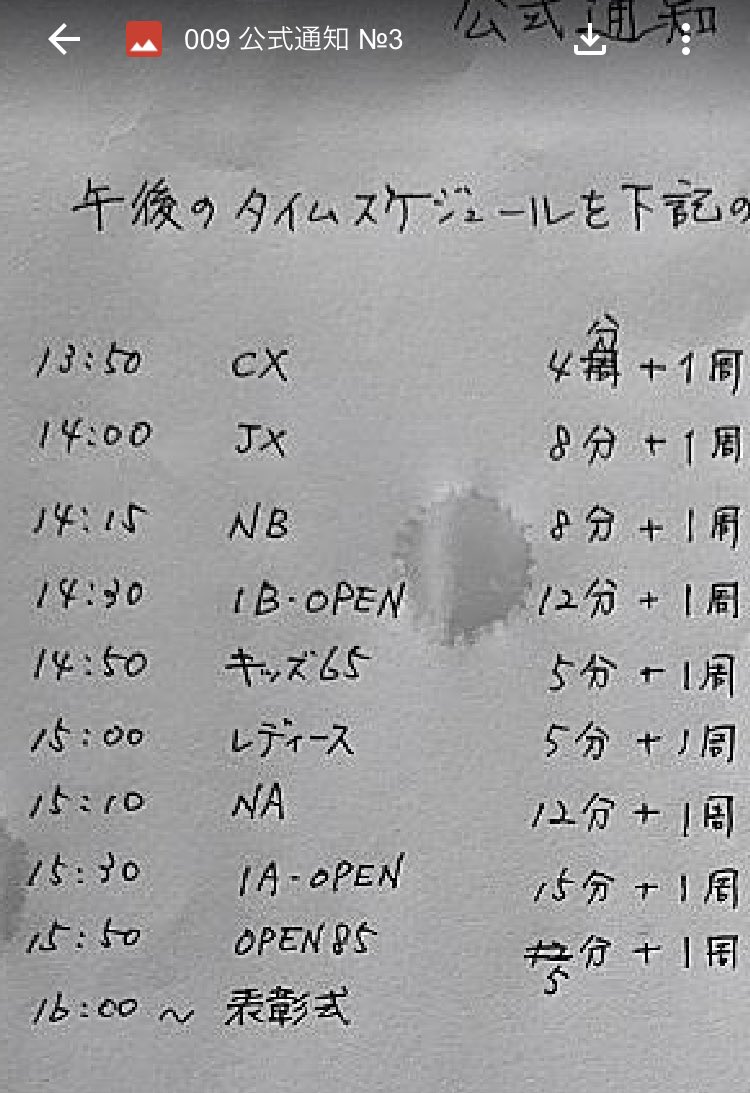 009 公式通知 №3
公式通知
午後のタイムスケジュールを下記の
13:50 CX 4分+1周
14:00 JX 8分+1周
14:15 NB 8分+1周
14:30 1B-OPEN 12分+1周
14:50 キッズ65 5分+1周
15:00 レディース 5分+1周
15:10 NA 12分+1周
15:30 1A-OPEN 15分+1周
15:50 OPEN85 5分+1周
16:00~ 表彰式